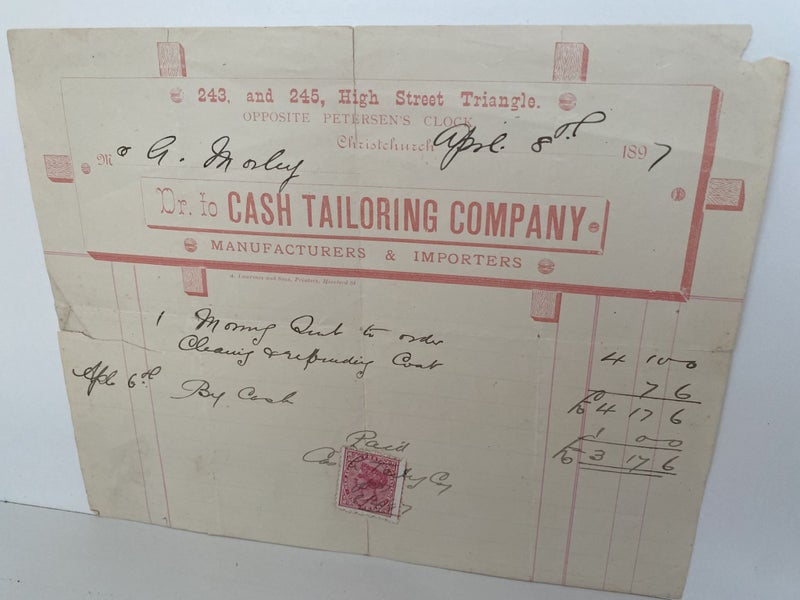 243, and 245, High Street Triangle.
OPPOSITE PETERSEN'S CLOCK
Christchurch April 8th 1897
Mr A. Morley
Dr. to CASH TAILORING COMPANY
MANUFACTURERS & IMPORTERS
A. Lawrence and Sons, Printers, Hereford St
1 Morning Suit to order 4 10 0
Cleaning & rebinding Coat 7 6
£4 17 6
Apl 6th By Cash 1 0 0
£3 17 6
Paid